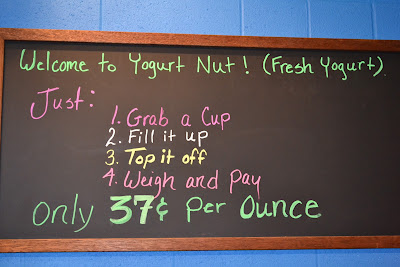 Welcome to Yogurt Nut! (Fresh Yogurt).
Just:
1. Grab a Cup
2. Fill it up
3. Top it off
4. Weigh and Pay
Only 37¢ Per Ounce